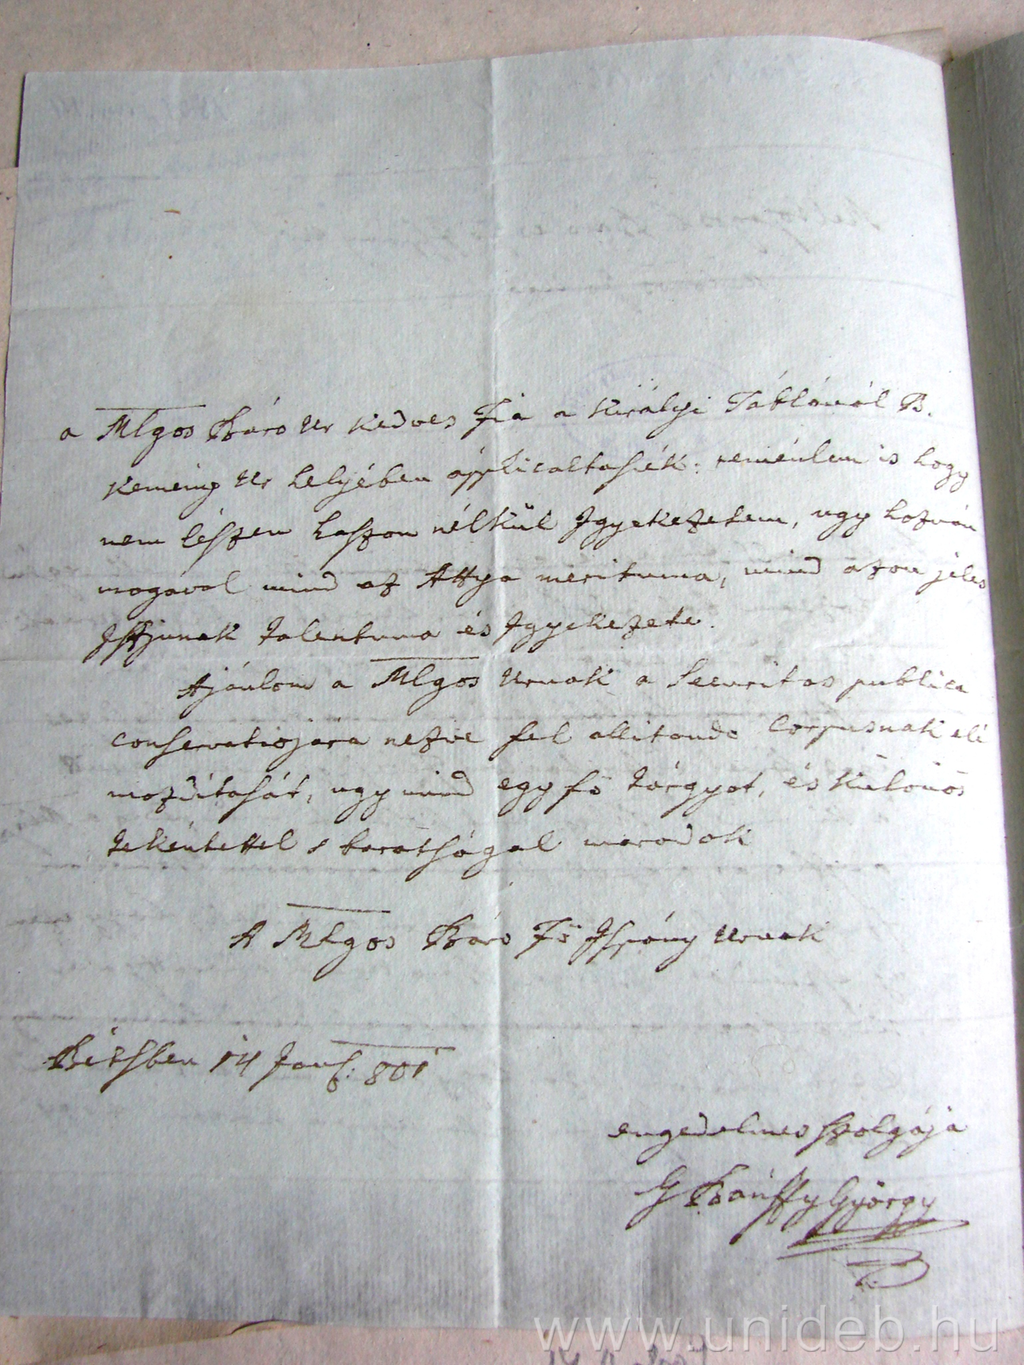 a Mlgos Báro Ur kedves Fia a Királyi Táblánál B.
Kemény Ur helyében applicaltassék: reménlem is hogy
nem lészen haszon nélkül Igyekezetem, ugy hozván
magával mind az Attya merituma, mind azon jeles
Iffjunak talentuma és Igyekezete.
Ajánlom a Mlgos Urnak a Securitas publica
conservatiojára nezve fel allitando Corpusnak elé
mozditását, ugy mind egy fö tárgyot, és Külonös
tekéntettel s baratságal maradok
A Mlgos Báro Fö Ispány Urnak
Bétsben 14 Jan: 801
engedelmes szolgája
G Bánffy György
www.unideb.hu